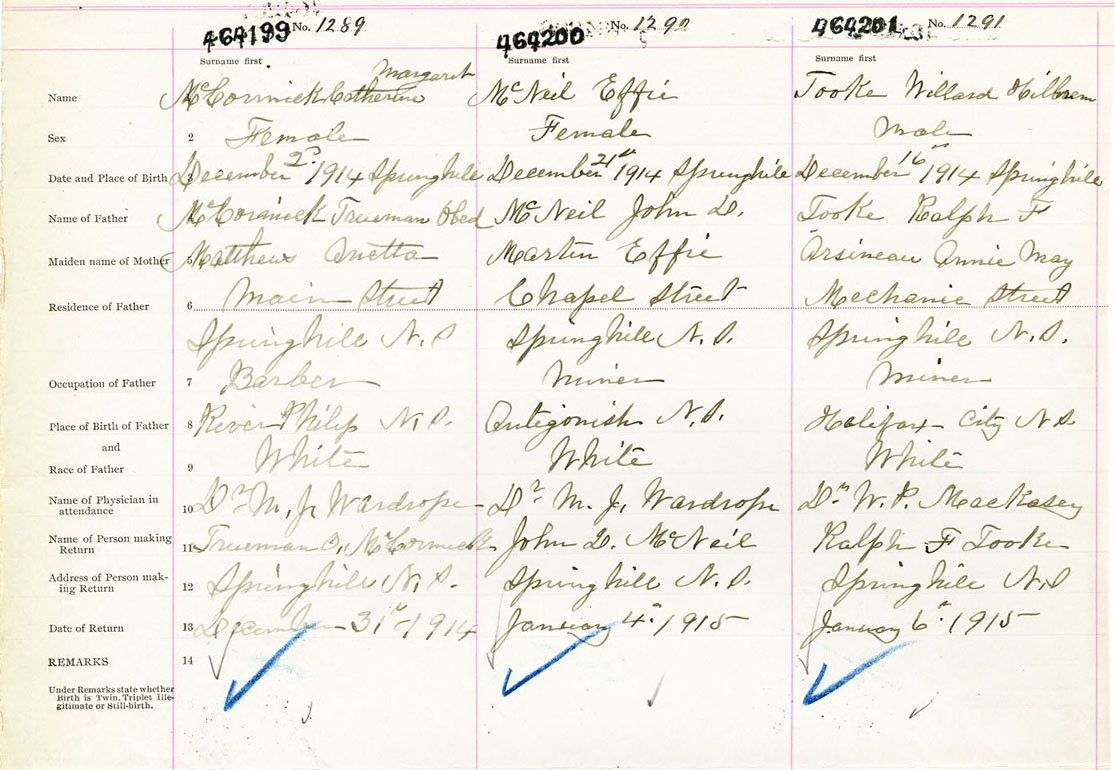 464199 No. 1289 464200 No. 1290 464201 No. 1291
Surname first Surname first Surname first
Margaret
Name 1 McCormick Catherine McNeil Effie Tooke Willard
Sex 2 Female Female Male
Date and Place of Birth 3 December 2nd 1914 Springhill December 21st 1914 Springhill December 16th 1914 Springhill
Name of Father 4 McCormick Trueman Obed McNeil John D. Tooke Ralph F
Maiden name of Mother 5 Matthews Arietta Martin Effie Arsineau Annie May
Residence of Father 6 Main Street Chapel Street Mechanic Street
Springhill N.S Springhill N.S. Springhill N.S.
Occupation of Father 7 Barber Miner Miner
Place of Birth of Father 8 River Philip N.S. Antigonish N.S. Halifax City N S
and
Race of Father 9 White White White
Name of Physician in attendance 10 Dr M. J. Wardrope Dr M. J. Wardrope Dr W. P. MacKasey
Name of Person making Return 11 Trueman O. McCormick John D. McNeil Ralph F Tooke
Address of Person making Return 12 Springhill N.S. Springhill N.S. Springhill N.S
Date of Return 13 December 31st 1914 January 4th 1915 January 6th 1915
REMARKS 14
Under Remarks state whether
Birth is Twin, Triplet Ille-
gitimate or Still-birth.